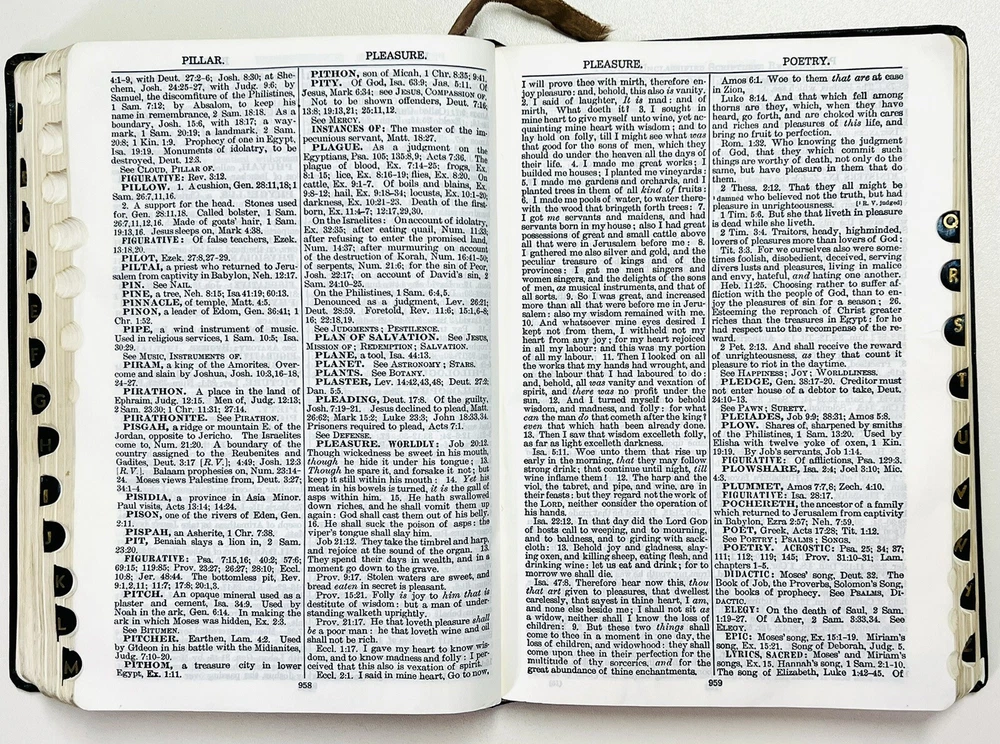 PILLAR.
PLEASURE.
4:1-9, with Deut. 27:2-6; Josh. 8:30; at She-
chem, Josh. 24:25-27, with Judg. 9:6; by
Samuel, the discomfiture of the Philistines,
1 Sam. 7:12; by Absalom, to keep his
name in remembrance, 2 Sam. 18:18. As a
boundary, Josh. 15:6, with 18:17; a way-
mark, 1 Sam. 20:19; a landmark, 2 Sam.
20:8; 1 Kin. 1:9. Prophecy of one in Egypt,
Isa. 19:19. Monuments of idolatry, to be
destroyed, Deut. 12:3.
See CLOUD, PILLAR OF.
FIGURATIVE: Rev. 3:12.
PILLOW. 1. A cushion, Gen. 28:11,18; 1
Sam. 26:7,11,16.
2. A support for the head. Stones used
for, Gen. 28:11,18. Called bolster, 1 Sam.
26:7,11,12,16. Made of goats' hair, 1 Sam.
19:13,16. Jesus sleeps on, Mark 4:38.
FIGURATIVE: Of false teachers, Ezek.
13:18,20.
PILOT, Ezek. 27:8,27-29.
PILTAI, a priest who returned to Jeru-
salem from captivity in Babylon, Neh. 12:17.
PIN. See NAIL.
PINE, a tree, Neh. 8:15; Isa 41:19; 60:13.
PINNACLE, of temple, Matt. 4:5.
PINON, a leader of Edom, Gen. 36:41; 1
Chr. 1:52.
PIPE, a wind instrument of music.
Used in religious services, 1 Sam. 10:5; Isa.
30:29.
See MUSIC, INSTRUMENTS OF.
PIRAM, a king of the Amorites. Over-
come and slain by Joshua, Josh. 10:3,16-18,
24-27.
PIRATHON. A place in the land of
Ephraim, Judg. 12:15. Men of, Judg. 12:13;
2 Sam. 23:30; 1 Chr. 11:31; 27:14.
PIRATHONITE. See PIRATHON.
PISGAH, a ridge or mountain E. of the
Jordan, opposite to Jericho. The Israelites
come to, Num. 21:20. A boundary of the
country assigned to the Reubenites and
Gadites, Deut. 3:17 [R. V.]; 4:49; Josh. 12:3
[R. V.]. Balaam prophesies on, Num. 23:14-
24. Moses views Palestine from, Deut. 3:27;
34:1-4.
PISIDIA, a province in Asia Minor.
Paul visits, Acts 13:14; 14:24.
PISON, one of the rivers of Eden, Gen.
2:11.
PISPAH, an Asherite, 1 Chr. 7:38.
PIT, Benaiah slays a lion in, 2 Sam.
23:20.
FIGURATIVE: Psa. 7:15,16; 40:2; 57:6;
69:15; 119:85; Prov. 23:27; 26:27; 28:10; Eccl.
10:8; Jer. 48:44. The bottomless pit, Rev.
9:1,2,11; 11:7; 17:8; 20:1,3.
PITCH. An opaque mineral used as a
plaster and cement, Isa. 34:9. Used by
Noah in the ark, Gen. 6:14. In making the
ark in which Moses was hidden, Ex. 2:3.
See BITUMEN.
PITCHER. Earthen, Lam. 4:2. Used
by Gideon in his battle with the Midianites,
Judg. 7:10-20.
PITHOM, a treasure city in lower
Egypt, Ex. 1:11.
PITHON, son of Micah, 1 Chr. 8:35; 9:41.
PITY. Of God, Isa. 63:9; Jas. 5:11. Of
Jesus, Mark 6:34; see JESUS, COMPASSION OF.
Not to be shown offenders, Deut. 7:16;
13:8; 19:13,21; 25:11,12.
See MERCY.
INSTANCES OF: The master of the im-
pecunious servant, Matt. 18:27.
PLAGUE. As a judgment on the
Egyptians, Psa. 105; 135:8,9; Acts 7:36. The
plague of blood, Ex. 7:14-25; frogs, Ex.
8:1-15; lice, Ex. 8:16-19; flies, Ex. 8:20. On
cattle, Ex. 9:1-7. Of boils and blains, Ex.
9:8-12; hail, Ex. 9:18-34; locusts, Ex. 10:1-20;
darkness, Ex. 10:21-23. Death of the first-
born, Ex. 11:4-7; 12:17,29,30.
On the Israelites: On account of idolatry,
Ex. 32:35; after eating quail, Num. 11:33;
after refusing to enter the promised land,
Num. 14:37; after murmuring on account
of the destruction of Korah, Num. 16:41-50;
of serpents, Num. 21:6; for the sin of Peor,
Josh. 22:17; on account of David's sin, 2
Sam. 24:10-25.
On the Philistines, 1 Sam. 6:4,5.
Denounced as a judgment, Lev. 26:21;
Deut. 28:59. Foretold, Rev. 11:6; 15:1,6-8;
16; 22:18,19.
See JUDGMENTS; PESTILENCE.
PLAN OF SALVATION. See JESUS,
MISSION OF; REDEMPTION; SALVATION.
PLANE, a tool, Isa. 44:13.
PLANET. See ASTRONOMY; STARS.
PLANTS. See BOTANY.
PLASTER, Lev. 14:42,43,48; Deut. 27:2;
Dan. 5:5.
PLEADING, Deut. 17:8. Of the guilty,
Josh. 7:19-21. Jesus declined to plead, Matt.
26:62; Mark 15:2; Luke 23:3; John 18:33,34.
Prisoners required to plead, Acts 7:1.
See DEFENSE.
PLEASURE. WORLDLY: Job 20:12.
Though wickedness be sweet in his mouth,
though he hide it under his tongue; 13.
Though he spare it, and forsake it not; but
keep it still within his mouth: 14. Yet his
meat in his bowels is turned, it is the gall of
asps within him. 15. He hath swallowed
down riches, and he shall vomit them up
again: God shall cast them out of his belly.
16. He shall suck the poison of asps: the
viper's tongue shall slay him.
Job 21:12. They take the timbrel and harp,
and rejoice at the sound of the organ. 13.
They spend their days in wealth, and in a
moment go down to the grave.
Prov. 9:17. Stolen waters are sweet, and
bread eaten in secret is pleasant.
Prov. 15:21. Folly is joy to him that is
destitute of wisdom: but a man of under-
standing walketh uprightly.
Prov. 21:17. He that loveth pleasure shall
be a poor man: he that loveth wine and oil
shall not be rich.
Eccl. 1:17. I gave my heart to know wis-
dom, and to know madness and folly: I per-
ceived that this also is vexation of spirit.
Eccl. 2:1. I said in mine heart, Go to now,
958
PLEASURE.
POETRY.
I will prove thee with mirth, therefore en-
joy pleasure: and, behold, this also is vanity.
2. I said of laughter, It is mad: and of
mirth, What doeth it? 3. I sought in
mine heart to give myself unto wine, yet ac-
quainting mine heart with wisdom; and to
lay hold on folly, till I might see what was
that good for the sons of men, which they
should do under the heaven all the days of
their life. 4. I made me great works; I
builded me houses; I planted me vineyards:
5. I made me gardens and orchards, and I
planted trees in them of all kind of fruits:
6. I made me pools of water, to water there-
with the wood that bringeth forth trees: 7.
I got me servants and maidens, and had
servants born in my house; also I had great
possessions of great and small cattle above
all that were in Jerusalem before me: 8.
I gathered me also silver and gold, and the
peculiar treasure of kings and of the
provinces: I gat me men singers and
women singers, and the delights of the sons
of men, as musical instruments, and that of
all sorts. 9. So I was great, and increased
more than all that were before me in Jeru-
salem: also my wisdom remained with me.
10. And whatsoever mine eyes desired I
kept not from them, I withheld not my
heart from any joy; for my heart rejoiced
in all my labour: and this was my portion
of all my labour. 11. Then I looked on all
the works that my hands had wrought, and
on the labour that I had laboured to do:
and, behold, all was vanity and vexation of
spirit, and there was no profit under the
sun. 12. And I turned myself to behold
wisdom, and madness, and folly: for what
can the man do that cometh after the king?
even that which hath been already done.
13. Then I saw that wisdom excelleth folly,
as far as light excelleth darkness.
Isa. 5:11. Woe unto them that rise up
early in the morning, that they may follow
strong drink; that continue until night, till
wine inflame them! 12. The harp, and the
viol, the tabret, and pipe, and wine, are in
their feasts: but they regard not the work of
the LORD, neither consider the operation of
his hands.
Isa. 22:12. In that day did the Lord GOD
of hosts call to weeping, and to mourning,
and to baldness, and to girding with sack-
cloth: 13. Behold joy and gladness, slay-
ing oxen, and killing sheep, eating flesh, and
drinking wine: let us eat and drink; for to
morrow we shall die.
Isa. 47:8. Therefore hear now this, thou
that art given to pleasures, that dwellest
carelessly, that sayest in thine heart, I am,
and none else beside me; I shall not sit as
a widow, neither shall I know the loss of
children: 9. But these two things shall
come to thee in a moment in one day, the
loss of children, and widowhood: they shall
come upon thee in their perfection for the
multitude of thy sorceries, and for the
great abundance of thine enchantments.
Amos 6:1. Woe to them that are at ease
in Zion,
Luke 8:14. And that which fell among
thorns are they, which, when they have
heard, go forth, and are choked with cares
and riches and pleasures of this life, and
bring no fruit to perfection.
Rom. 1:32. Who knowing the judgment
of God, that they which commit such
things are worthy of death, not only do the
same, but have pleasure in them that do
them.
2 Thess. 2:12. That they all might be
damned who believed not the truth, but had
pleasure in unrighteousness. [R. V. judged]
1 Tim. 5:6. But she that liveth in pleasure
is dead while she liveth.
2 Tim. 3:4. Traitors, heady, highminded,
lovers of pleasures more than lovers of God:
Tit. 3:3. For we ourselves also were some-
times foolish, disobedient, deceived, serving
divers lusts and pleasures, living in malice
and envy, hateful, and hating one another.
Heb. 11:25. Choosing rather to suffer af-
fliction with the people of God, than to en-
joy the pleasures of sin for a season; 26.
Esteeming the reproach of Christ greater
riches than the treasures in Egypt: for he
had respect unto the recompense of the re-
ward.
2 Pet. 2:13. And shall receive the reward
of unrighteousness, as they that count it
pleasure to riot in the daytime.
See HAPPINESS; JOY; WORLDLINESS.
PLEDGE, Gen. 38:17-20. Creditor must
not enter house of debtor to take, Deut.
24:10-13.
See PAWN; SURETY.
PLEIADES, Job 9:9; 38:31; Amos 5:8.
PLOW. Shares of, sharpened by smiths
of the Philistines, 1 Sam. 13:20. Used by
Elisha with twelve yoke of oxen, 1 Kin.
19:19. By Job's servants, Job 1:14.
FIGURATIVE: Of afflictions, Psa. 129:3.
PLOWSHARE, Isa. 2:4; Joel 3:10; Mic.
4:3.
PLUMMET, Amos 7:7,8; Zech. 4:10.
FIGURATIVE: Isa. 28:17.
POCHERETH, the ancestor of a family
which returned to Jerusalem from captivity
in Babylon, Ezra 2:57; Neh. 7:59.
POET, Greek, Acts 17:28; Tit. 1:12.
See POETRY; PSALMS; SONG.
POETRY. ACROSTIC: Psa. 25; 34; 37;
111; 112; 119; 145; Prov. 31:10-31; Lam.
chapters 1-5.
DIDACTIC: Moses' song, Deut. 32. The
Book of Job, the Proverbs, Solomon's Song,
the books of prophecy. See PSALMS, DI-
DACTIC.
ELEGY: On the death of Saul, 2 Sam.
1:19-27. Of Abner, 2 Sam. 3:33,34. See
ELEGY.
EPIC: Moses' song, Ex. 15:1-19. Miriam's
song, Ex. 15:21. Song of Deborah, Judg. 5.
LYRICS, SACRED: Moses' and Miriam's
songs, Ex. 15. Hannah's song, 1 Sam. 2:1-10.
The song of Elizabeth, Luke 1:42-45. Of
959
E
F
G
H
I
J
K
L
M
Q
R
S
T
U
V